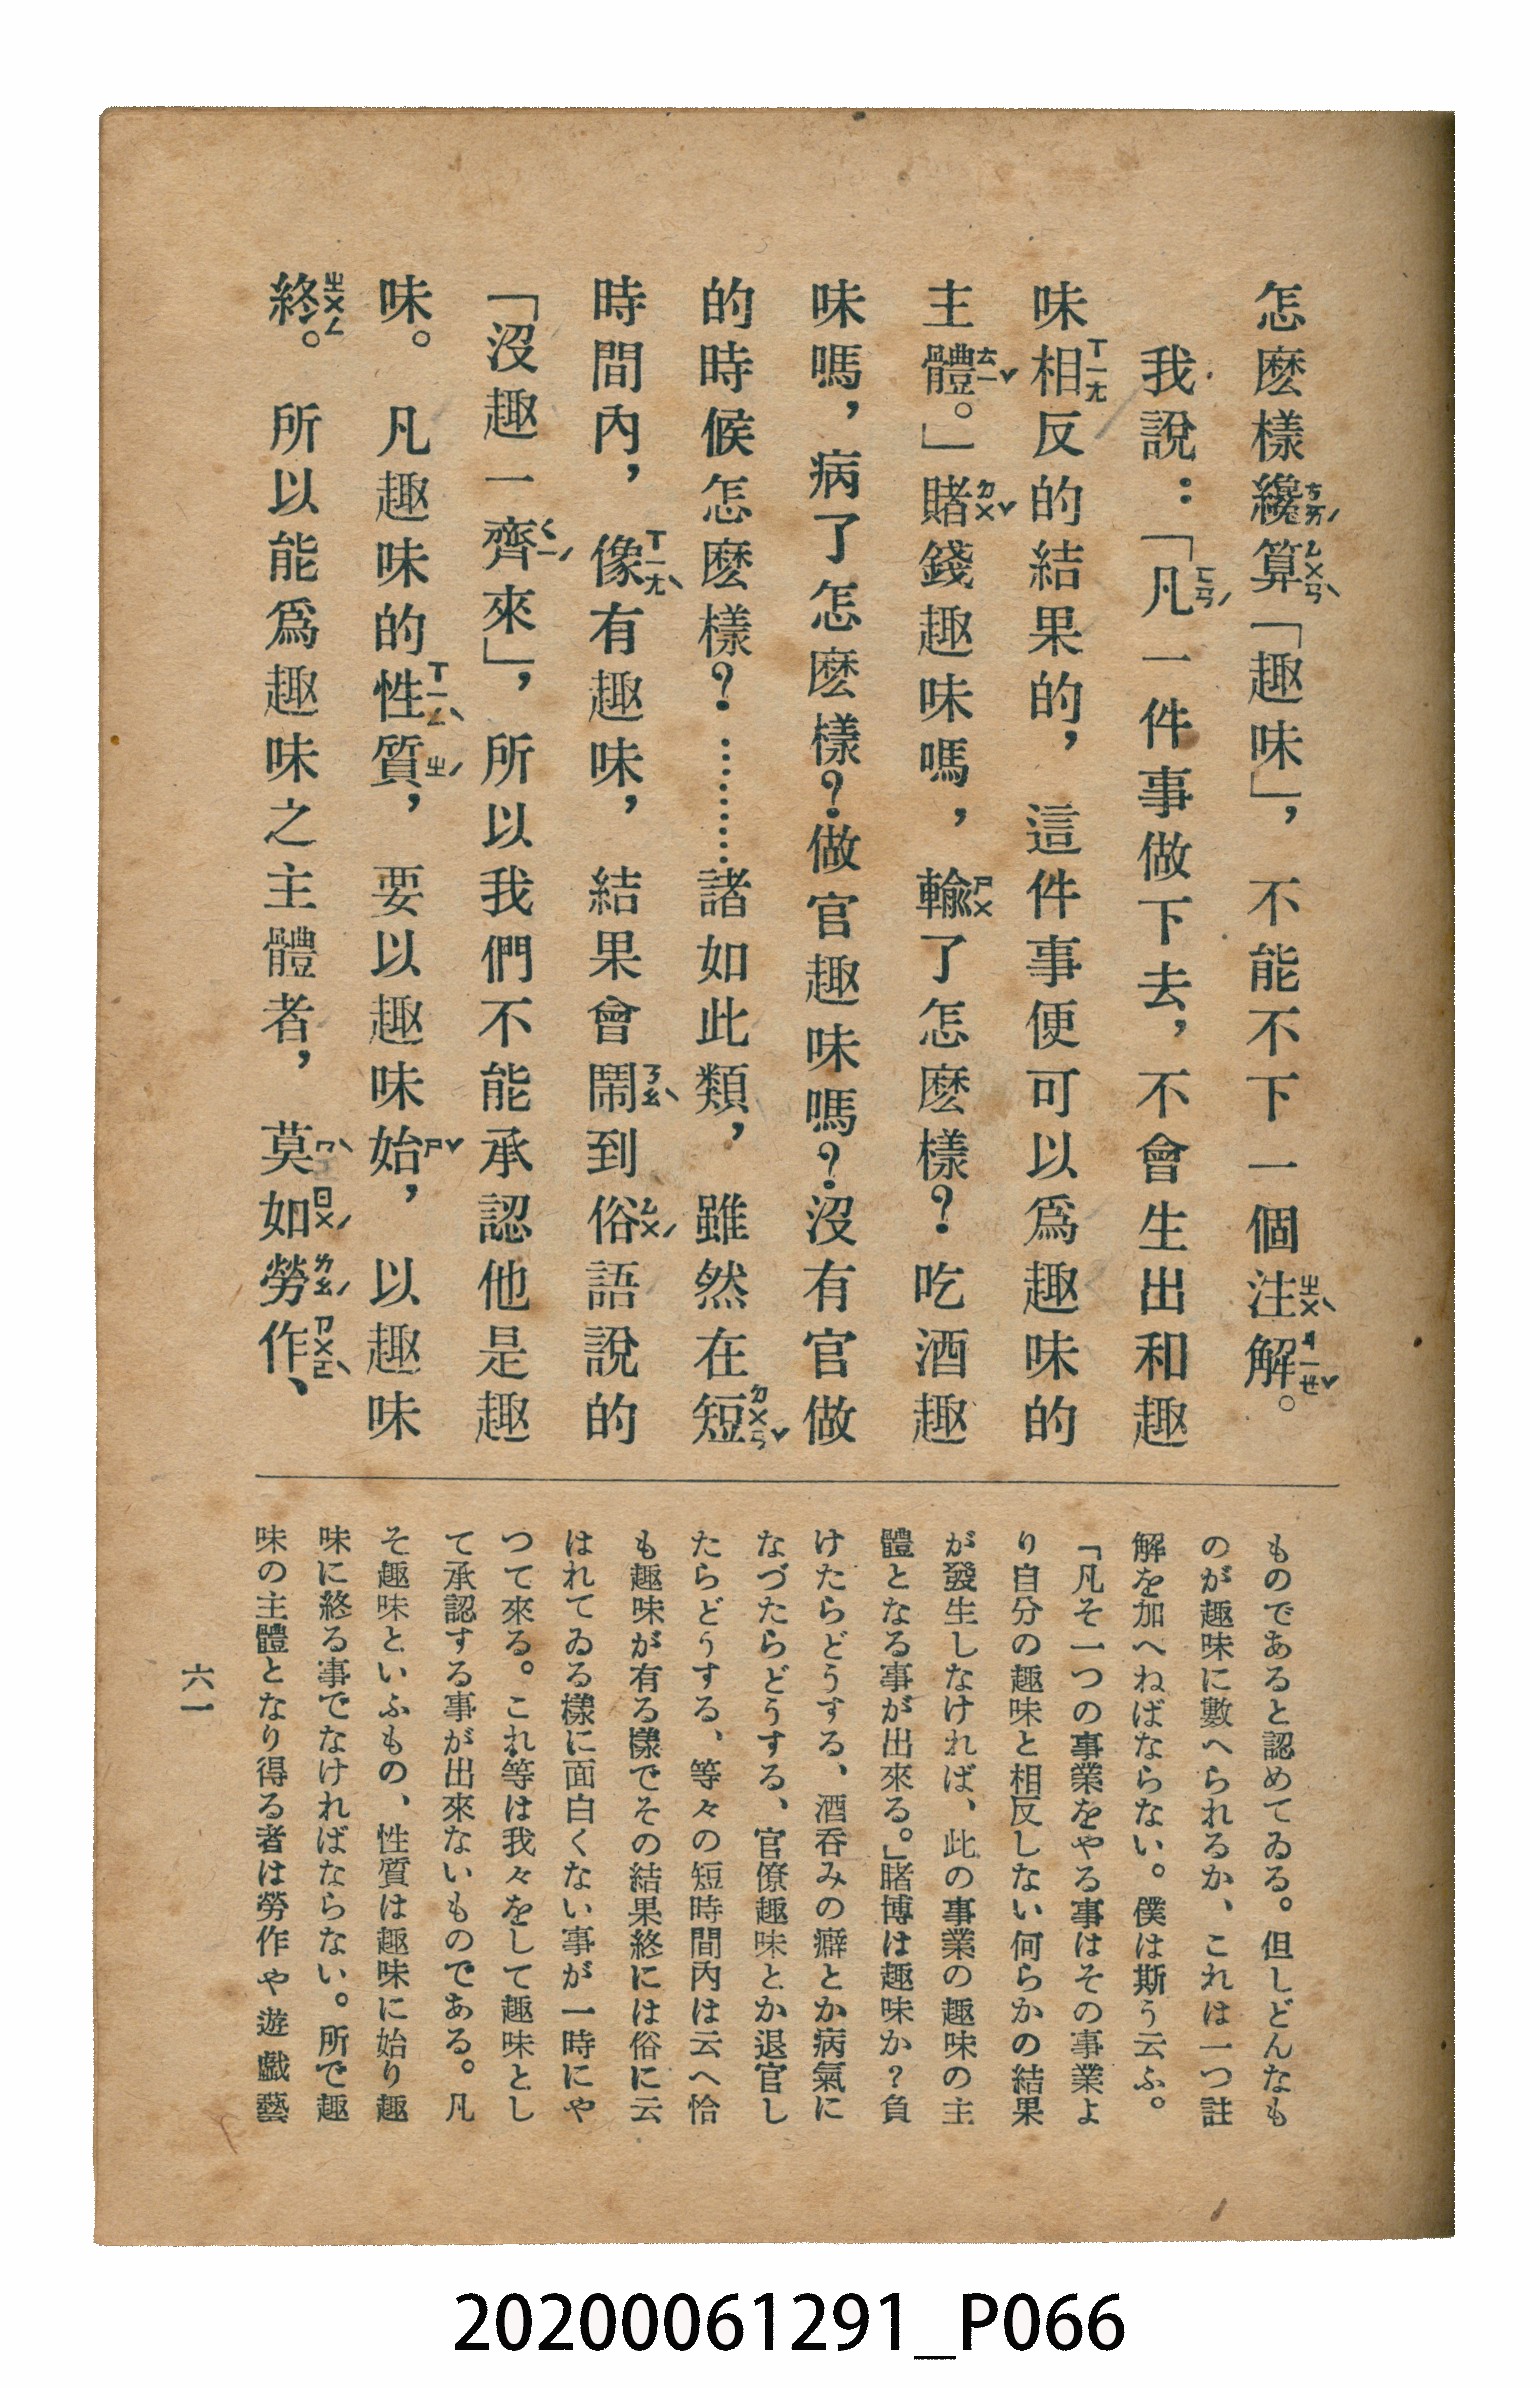 怎麽樣纔算「趣味」，不能不下一個注解。
我說：「凡一件事做下去，不會生出和趣
味相反的結果的，這件事便可以爲趣味的
主體。」賭錢趣味嗎，輸了怎麽樣？吃酒趣
味嗎，病了怎麽樣？做官趣味嗎？沒有官做
的時候怎麽樣？………諸如此類，雖然在短
時間內，像有趣味，結果會鬧到俗語說的
「沒趣一齊來」，所以我們不能承認他是趣
味。凡趣味的性質，要以趣味始，以趣味
終。所以能爲趣味之主體者，莫如勞作、
ものであると認めてゐる。但しどんなも
のが趣味に數へられるか、これは一つ註
解を加へねばならない。僕は斯う云ふ。
「凡そ一つの事業をやる事はその事業よ
り自分の趣味と相反しない何らかの結果
が發生しなければ、此の事業の趣味の主
體となる事が出來る。」賭博は趣味か？負
けたらどうする、酒呑みの癖とか病氣に
なづたらどうする、官僚趣味とか退官し
たらどうする、等々の短時間內は云へ恰
も趣味が有る樣でその結果終には俗に云
はれてゐる樣に面白くない事が一時にや
つて來る。これ等は我々をして趣味とし
て承認する事が出來ないものである。凡
そ趣味といふもの、性質は趣味に始り趣
味に終る事でなければならない。所で趣
味の主體となり得る者は勞作や遊戲藝
六一
20200061291_P066